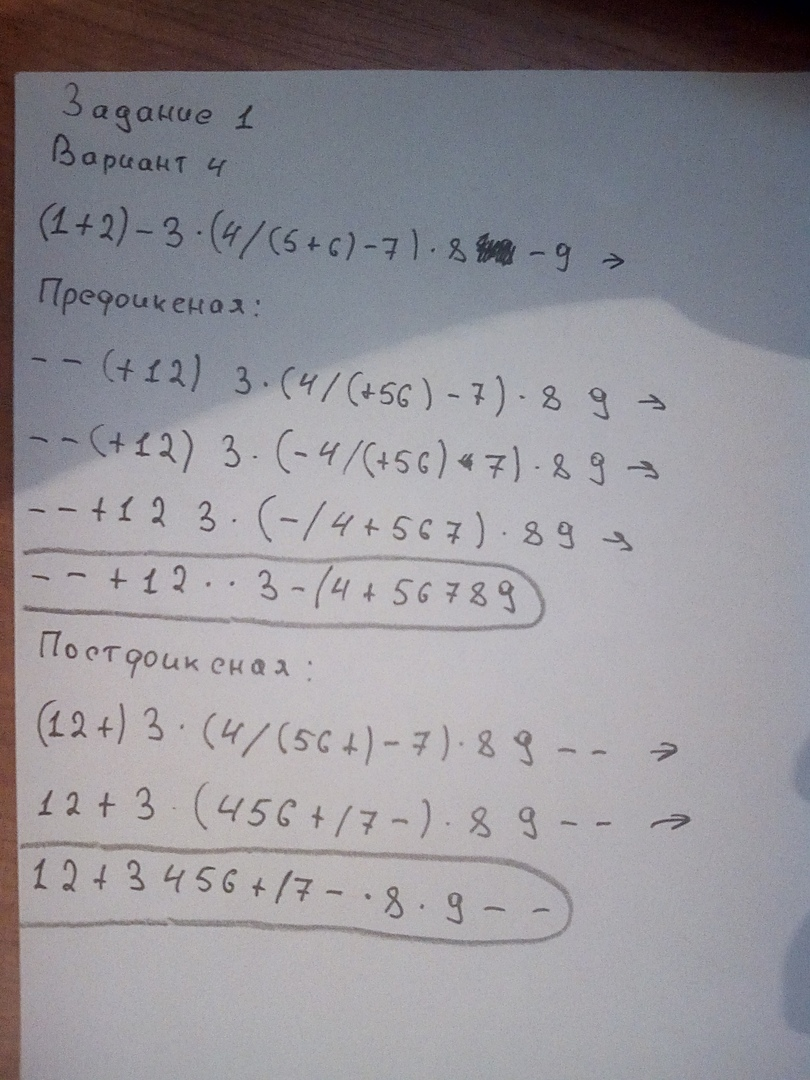 Задание 1
Вариант 4
(1+2)-3·(4/(5+6)-7)·8 -9 →
Префиксная:
--(+12) 3·(4/(+56)-7)·8 9 →
--(+12) 3·(-4/(+56) 7)·8 9 →
--+12 3·(-/4+567)·89 →
--+12··3-/4+56789
Постфиксная:
(12+)3·(4/(56+)-7)·89-- →
12+3·(456+/7-)·89-- →
12+3456+/7-·8·9--